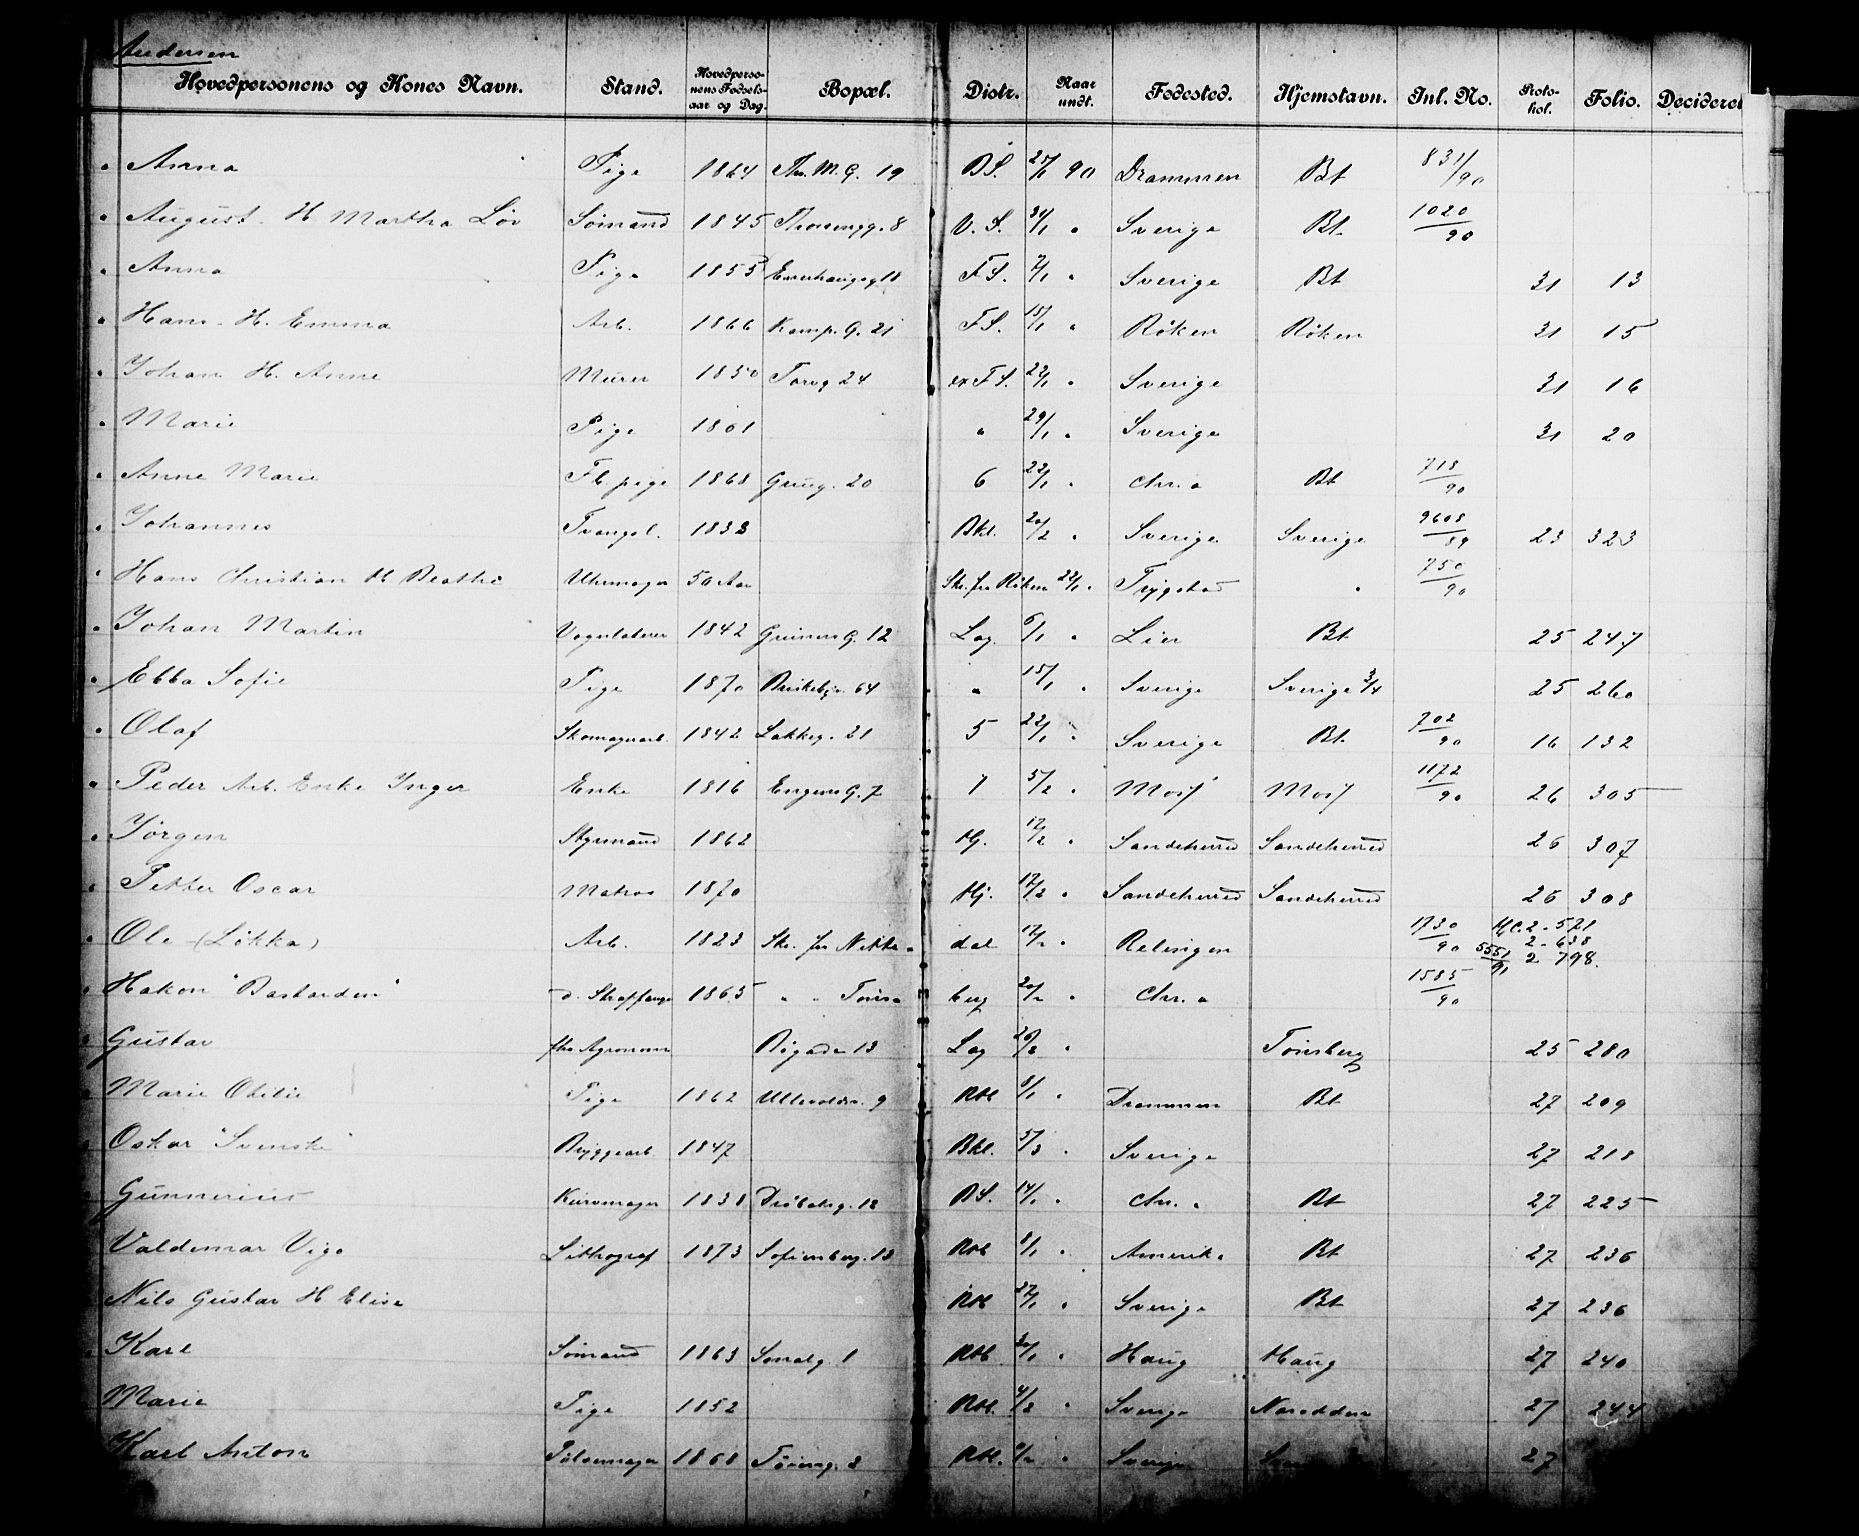 Andersen
Hovedpersonens og Kones Navn. Stand. Hovedpersonens Fødselsaar og Dag. Bopæl. Distr. Naar undt. Fødested. Hjemstavn. Inl. No. Protokol. Folio. Decideret
Anna Pige 1864 Th. M. G. 19 B S. 25/1 90 Drammen Bt 831/90
August H Martha Lov Sømand 1845 8 V. S. 31/1 " Sverige Bt 1020/90
Anna Pige 1855 Enerhaugsg 18 F S. 7/1 " Sverige Bt 31 13
Hans H. Emma Arb. 1866 Kamp. G. 21 F S. 15/1 " Røken Røken 31 15
Johan H. Anne Murer 1850 Torvg 24 ex F S. 22/1 " Sverige 31 16
Marie Pige 1861 " 29/1 " Sverige 31 20
Anne Marie Fb pige 1868 20 6 22/1 " Chr. a Bt 718/90
Johannes Tvangsl. 1833 Bkl. 20/2 " Sverige Sverige 9608/89 23 323
Hans Christian H Beathe Uhrmager 50 Aar Skr. fra Røken 22/1 " Trygstad " 750/90
Johan Martin 1842 G. 12 Lag 6/1 " Lier Bt 25 247
Ebba Sofie Pige 1870 64 " 15/1 " Sverige Sverige 3/4 25 260
Olaf Skomagerarb. 1842 Lakkeg. 21 5 22/1 " Sverige Bt 702/90 16 132
Peder Arb. Enke Inger Enke 1816 Engens G. 7 7 5/2 " Moss Moss 1172/90 26 305
Jørgen Styrmand 1862 Hj. 12/2 " Sandeherred Sandeherred 26 307
Petter Oscar Matros 1870 Hj. 12/2 " Sandeherred Sandeherred 26 308
Ole (Løkka) Arb. 1823 Skr. fra Nitte- dal 12/2 " Relingen 1730/90 2 - 571
2 - 638
5551/91 2 798.
Hakon "Bastarden" d. Straffange 1865 " " Tøns- berg 20/2 " Chr. a 1585/90
Gustav fhv Agronom 13 Lag 26/2 " Tønsberg 25 280
Marie Otilie Pige 1862 Ullevoldsv. 9 Rbl 8/1 " Drammen Bt 27 209
Oskar "Svenske" Bryggearb 1847 Bkl. 5/3 " Sverige 27 218
Gunnerius Kurvmager 1838 Drøbaksg. 12 B S. 14/1 " Chr. a Bt 27 225
Valdemar Vigo Lithograf 1873 Sofienberg. 13 Rbl 8/1 " Amerika Bt 27 236
Nils Gustav H Elise Rbl 22/1 " Sverige Bt 27 236
Karl Sømand 1863 1 Rbl. 30/1 " Haug Haug 27 240
Marie Pige 1852 Rbl. 4/2 " Sverige 27 244
Karl Anton Pølsemager 1868 Tøieng. 2 Rbl. " Sverige 27